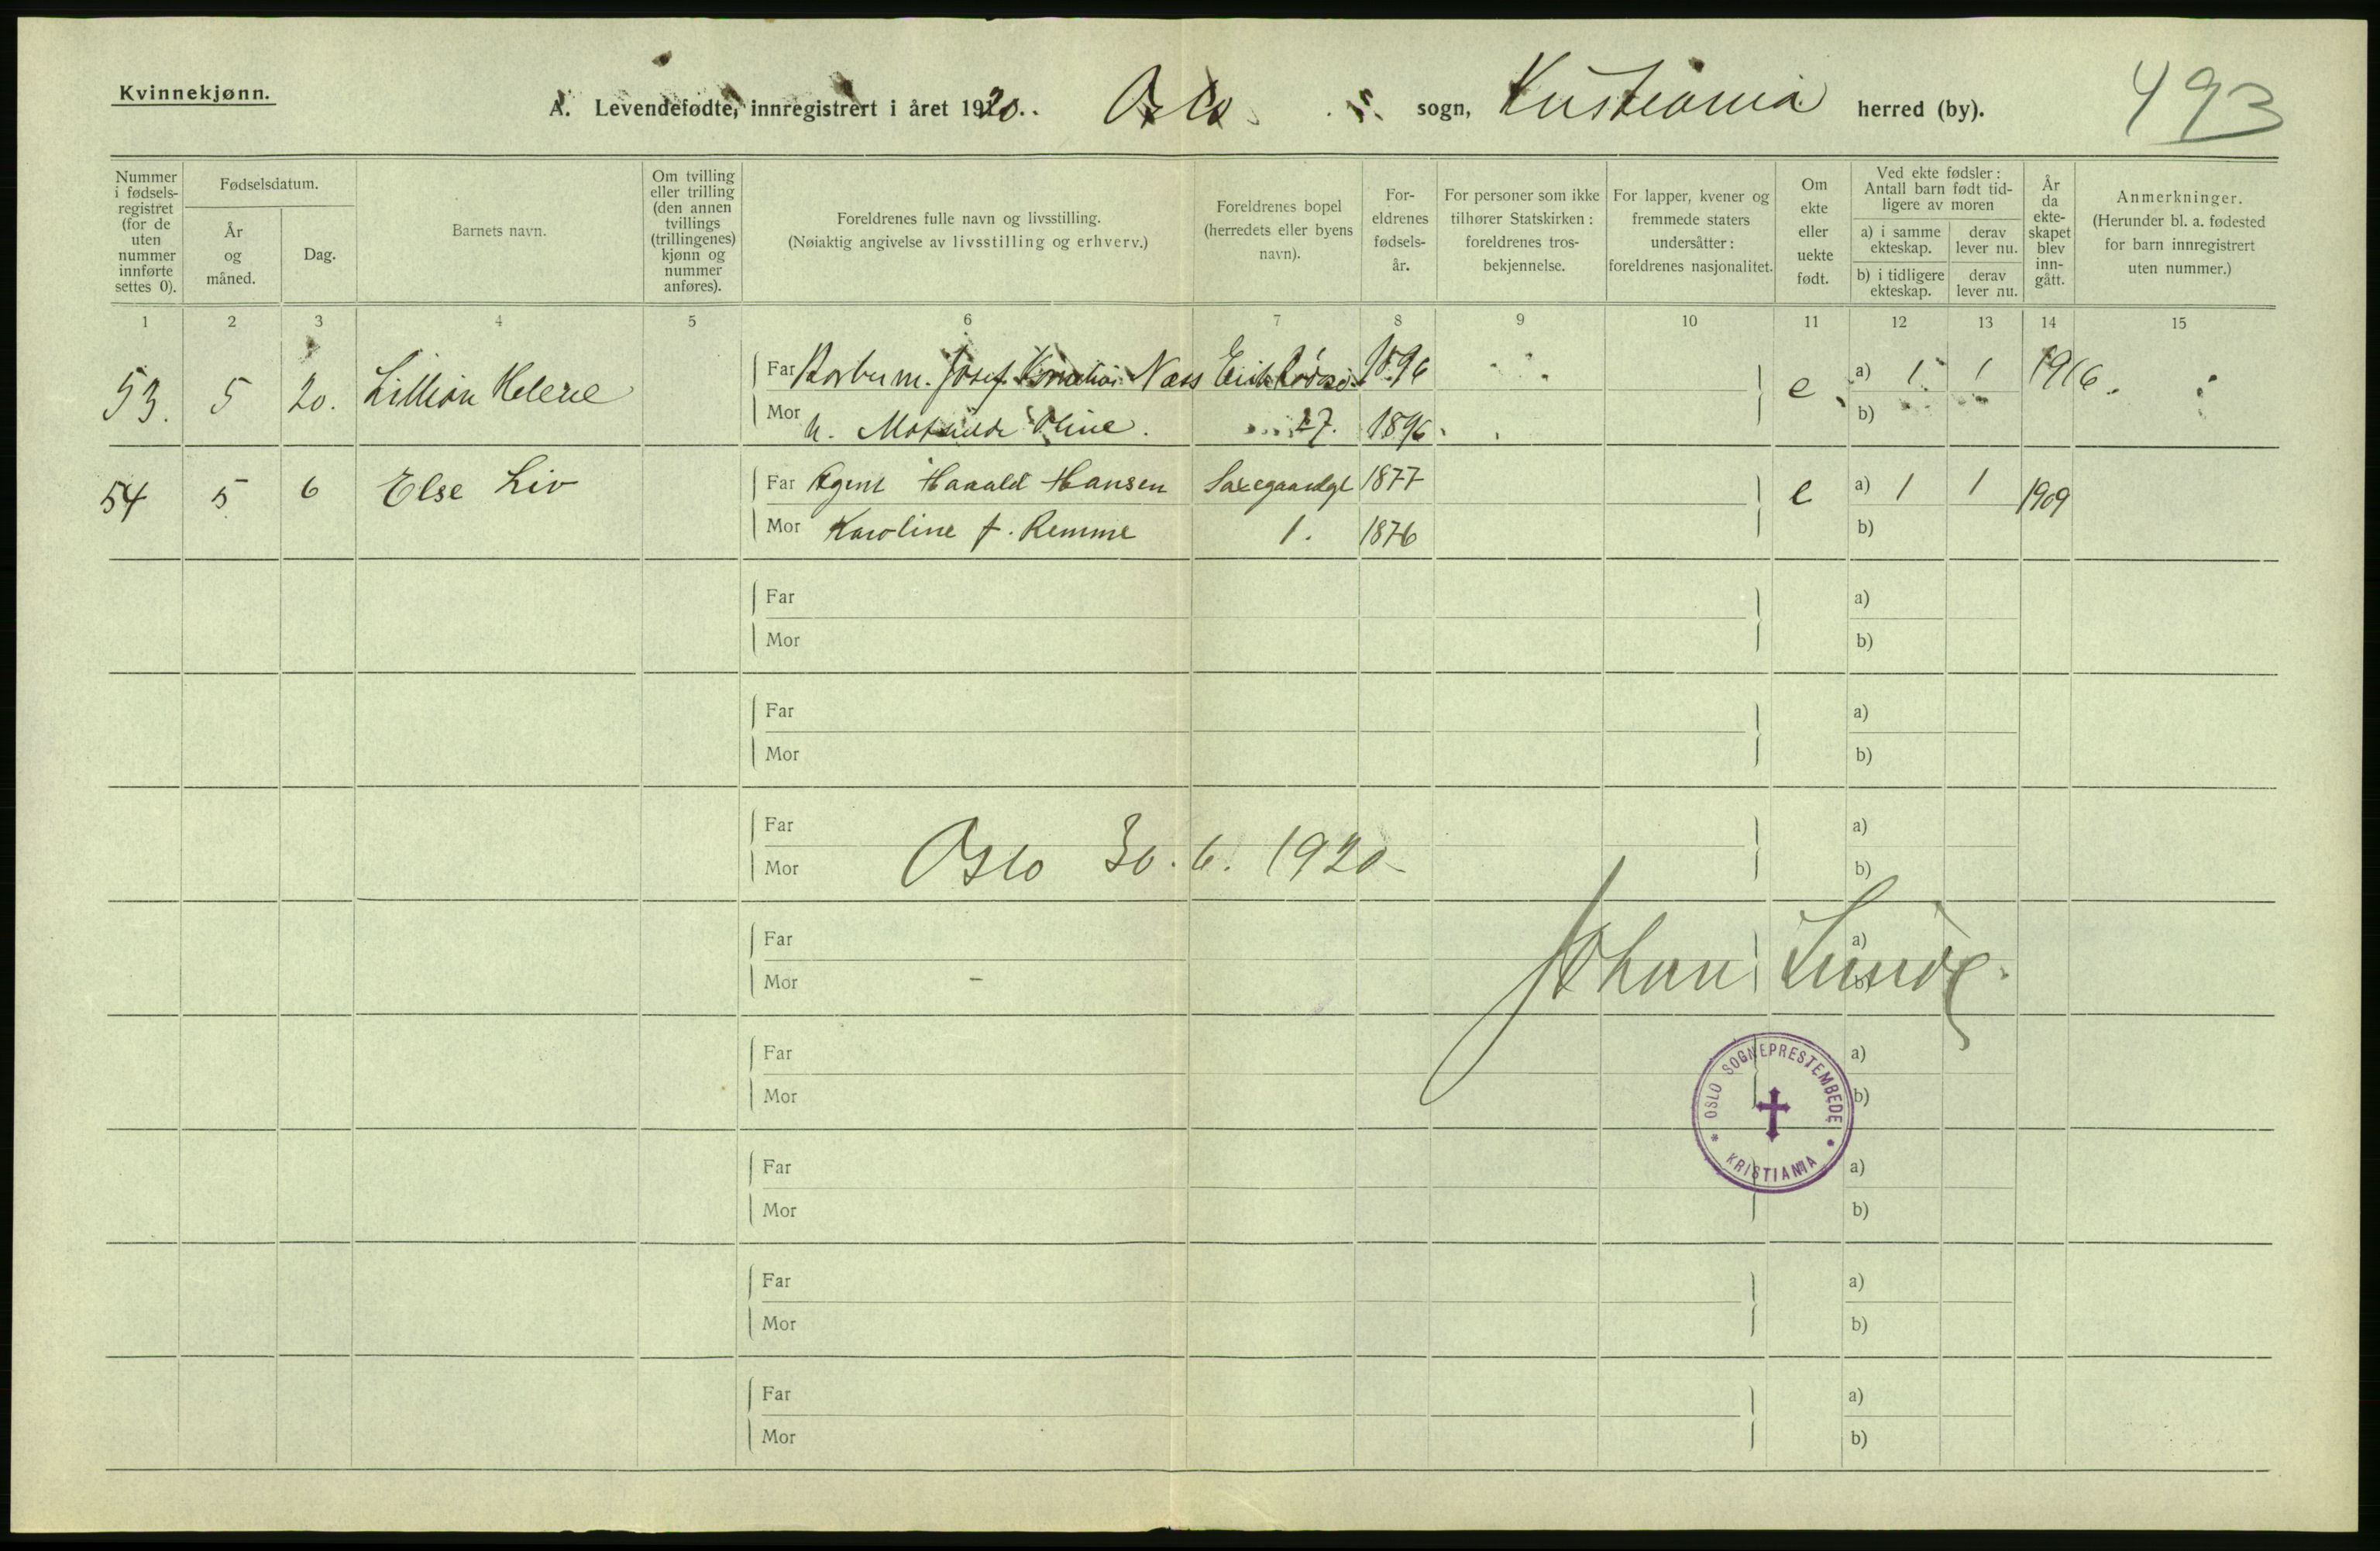 Kvinnekjønn.
A. Levendefødte, innregistrert i året 1920. Oslo sogn, Kristiania herred (by).
493
Nummer i fødselsregistret (for de uten nummer innførte settes 0).
Fødselsdatum.
År og måned.
Dag.
Barnets navn.
Om tvilling eller trilling (den annen tvillings (trillingenes) kjønn og nummer anføres).
Foreldrenes fulle navn og livsstilling.
(Nøiaktig angivelse av livsstilling og erhverv.)
Foreldrenes bopel (herredets eller byens navn).
Foreldrenes fødselsår.
For personer som ikke tilhører Statskirken: foreldrenes trosbekjennelse.
For lapper, kvener og fremmede staters undersåtter: foreldrenes nasjonalitet.
Om ekte eller uekte født.
Ved ekte fødsler: Antall barn født tidligere av moren
a) i samme ekteskap.
derav lever nu.
b) i tidligere ekteskap.
derav lever nu.
År da ekteskapet blev inngått.
Anmerkninger.
(Herunder bl. a. fødested for barn innregistrert uten nummer.)
1 2 3 4 5 6 7 8 9 10 11 12 13 14 15
53. 5 20. Lillian Helene Far Josef Næss 1896 e a) 1 1 1916.
Mor Oline. 27. 1896 b)
54 5 6 Else Liv Far Agent Harald Hansen Saxegaardgt 1877 e a) 1 1 1909
Mor Karoline f. Remme 1. 1876 b)
Far a)
Mor b)
Far a)
Mor b)
Far a)
Oslo 30. 6. 1920
Mor b)
Far a)
Johan Lunde.
Mor b)
Far a)
Mor b)
OSLO SOGNEPRESTEMBEDE
KRISTIANIA
Far a)
Mor b)
Far a)
Mor b)
Far a)
Mor b)